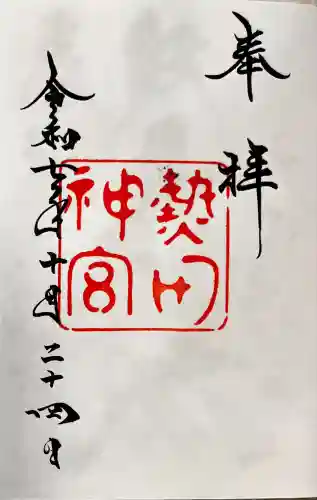 奉拝
熱田
神宮
令和七年十月二十四日